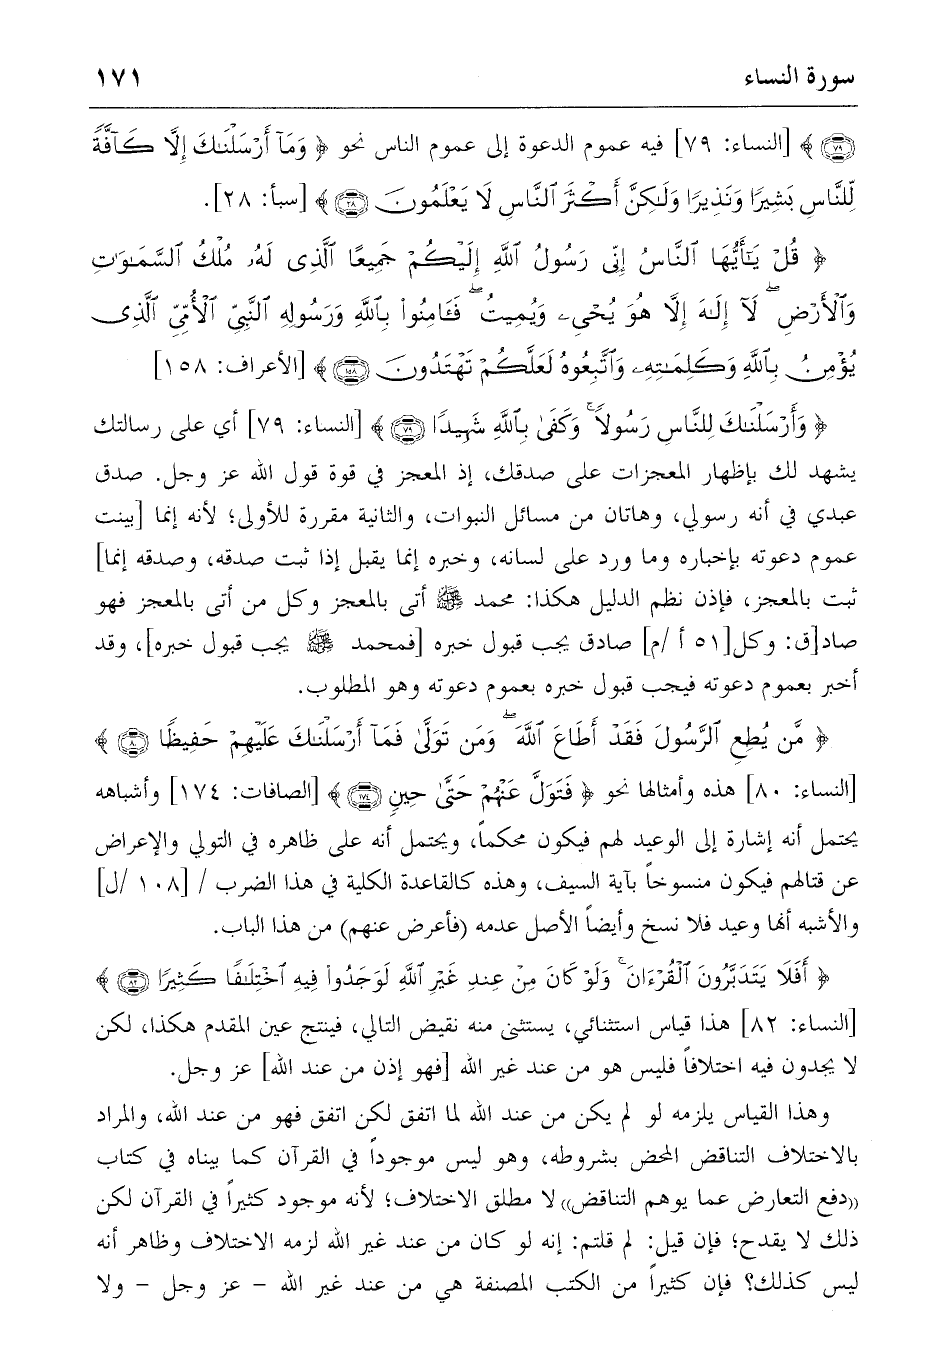 سورة النساء ١٧١
﴿٧٩﴾ [النساء: ٧٩] فيه عموم الدعوة إلى عموم الناس نحو ﴿ وَمَآ أَرْسَلْنَٰكَ إِلَّا كَآفَّةً
لِّلنَّاسِ بَشِيرًا وَنَذِيرًا وَلَٰكِنَّ أَكْثَرَ ٱلنَّاسِ لَا يَعْلَمُونَ ٢٨ ﴾ [سبأ: ٢٨].
﴿ قُلْ يَٰٓأَيُّهَا ٱلنَّاسُ إِنِّى رَسُولُ ٱللَّهِ إِلَيْكُمْ جَمِيعًا ٱلَّذِى لَهُۥ مُلْكُ ٱلسَّمَٰوَٰتِ
وَٱلْأَرْضِ ۖ لَآ إِلَٰهَ إِلَّا هُوَ يُحْىِۦ وَيُمِيتُ ۖ فَـَٔامِنُوا۟ بِٱللَّهِ وَرَسُولِهِ ٱلنَّبِىِّ ٱلْأُمِّىِّ ٱلَّذِى
يُؤْمِنُ بِٱللَّهِ وَكَلِمَٰتِهِۦ وَٱتَّبِعُوهُ لَعَلَّكُمْ تَهْتَدُونَ ١٥٨ ﴾ [الأعراف: ١٥٨]
﴿ وَأَرْسَلْنَٰكَ لِلنَّاسِ رَسُولًا ۚ وَكَفَىٰ بِٱللَّهِ شَهِيدًا ٧٩ ﴾ [النساء: ٧٩] أي على رسالتك
يشهد لك بإظهار المعجزات على صدقك، إذ المعجز في قوة قول الله عز وجل. صدق
عبدي في أنه رسولي، وهاتان من مسائل النبوات، والثانية مقررة للأولى؛ لأنه إنما [بينت
عموم دعوته بإخباره وما ورد على لسانه، وخبره إنما يقبل إذا ثبت صدقه، وصدقه إنما]
ثبت بالمعجز، فإذن نظم الدليل هكذا: محمد ﷺ أتى بالمعجز وكل من أتى بالمعجز فهو
صاد[ق: وكل[٥١ أ /م] صادق يجب قبول خبره [فمحمد ﷺ يجب قبول خبره]، وقد
أخبر بعموم دعوته فيجب قبول خبره بعموم دعوته وهو المطلوب.
﴿ مَّن يُطِعِ ٱلرَّسُولَ فَقَدْ أَطَاعَ ٱللَّهَ ۖ وَمَن تَوَلَّىٰ فَمَآ أَرْسَلْنَٰكَ عَلَيْهِمْ حَفِيظًا ٨٠ ﴾
[النساء: ٨٠] هذه وأمثالها نحو ﴿ فَتَوَلَّ عَنْهُمْ حَتَّىٰ حِينٍ ١٧٤ ﴾ [الصافات: ١٧٤] وأشباهه
يحتمل أنه إشارة إلى الوعيد لهم فيكون محكماً، ويحتمل أنه على ظاهره في التولي والإعراض
عن قتالهم فيكون منسوخاً بآية السيف، وهذه كالقاعدة الكلية في هذا الضرب / [١٠٨ /ل]
والأشبه أنها وعيد فلا نسخ وأيضاً الأصل عدمه (فأعرض عنهم) من هذا الباب.
﴿ أَفَلَا يَتَدَبَّرُونَ ٱلْقُرْءَانَ ۚ وَلَوْ كَانَ مِنْ عِندِ غَيْرِ ٱللَّهِ لَوَجَدُوا۟ فِيهِ ٱخْتِلَٰفًا كَثِيرًا ٨٢ ﴾
[النساء: ٨٢] هذا قياس استثنائي، يستثنى منه نقيض التالي، فينتج عين المقدم هكذا، لكن
لا يجدون فيه اختلافاً فليس هو من عند غير الله [فهو إذن من عند الله] عز وجل.
وهذا القياس يلزمه لو لم يكن من عند الله لما اتفق لكن اتفق فهو من عند الله، والمراد
بالاختلاف التناقض المحض بشروطه، وهو ليس موجوداً في القرآن كما بيناه في كتاب
((دفع التعارض عما يوهم التناقض)) لا مطلق الاختلاف؛ لأنه موجود كثيراً في القرآن لكن
ذلك لا يقدح؛ فإن قيل: لم قلتم: إنه لو كان من عند غير الله لزمه الاختلاف وظاهر أنه
ليس كذلك؟ فإن كثيراً من الكتب المصنفة هي من عند غير الله – عز وجل – ولا